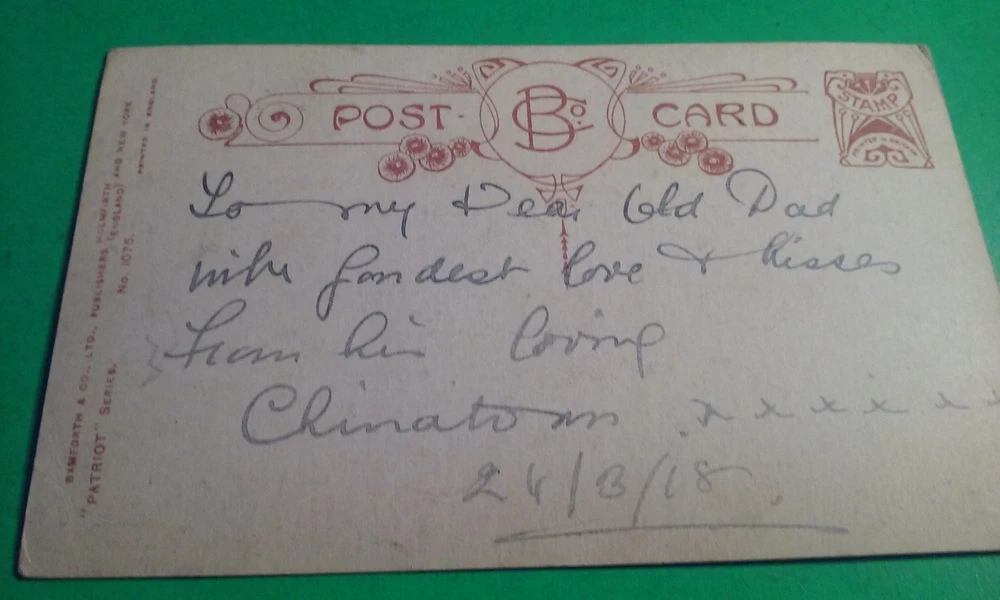 POST CARD
B & Co. Ltd
STAMP
PRINTED IN ENGLAND
To my Dear Old Dad
with fondest love & kisses
from his loving
Chinatown x x x x x x x
24/3/18.
BAMFORTH & CO., LTD., PUBLISHERS, HOLMFIRTH (ENGLAND) AND NEW YORK
"PATRIOT" SERIES. No. 1075.
PRINTED IN ENGLAND.